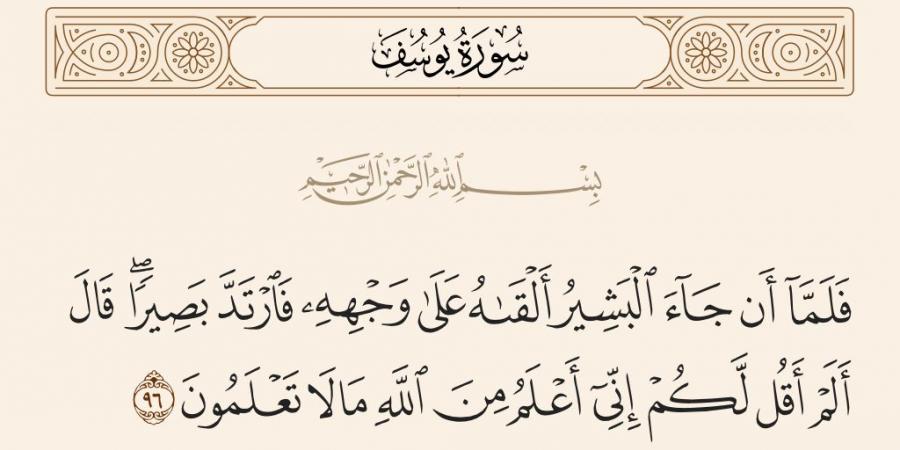 سُورَةُ يُوسُفَ
بِسْمِ ٱللَّهِ ٱلرَّحْمَٰنِ ٱلرَّحِيمِ
فَلَمَّآ أَن جَآءَ ٱلْبَشِيرُ أَلْقَىٰهُ عَلَىٰ وَجْهِهِۦ فَٱرْتَدَّ بَصِيرًاۖ قَالَ
أَلَمْ أَقُل لَّكُمْ إِنِّىٓ أَعْلَمُ مِنَ ٱللَّهِ مَا لَا تَعْلَمُونَ ٩٦